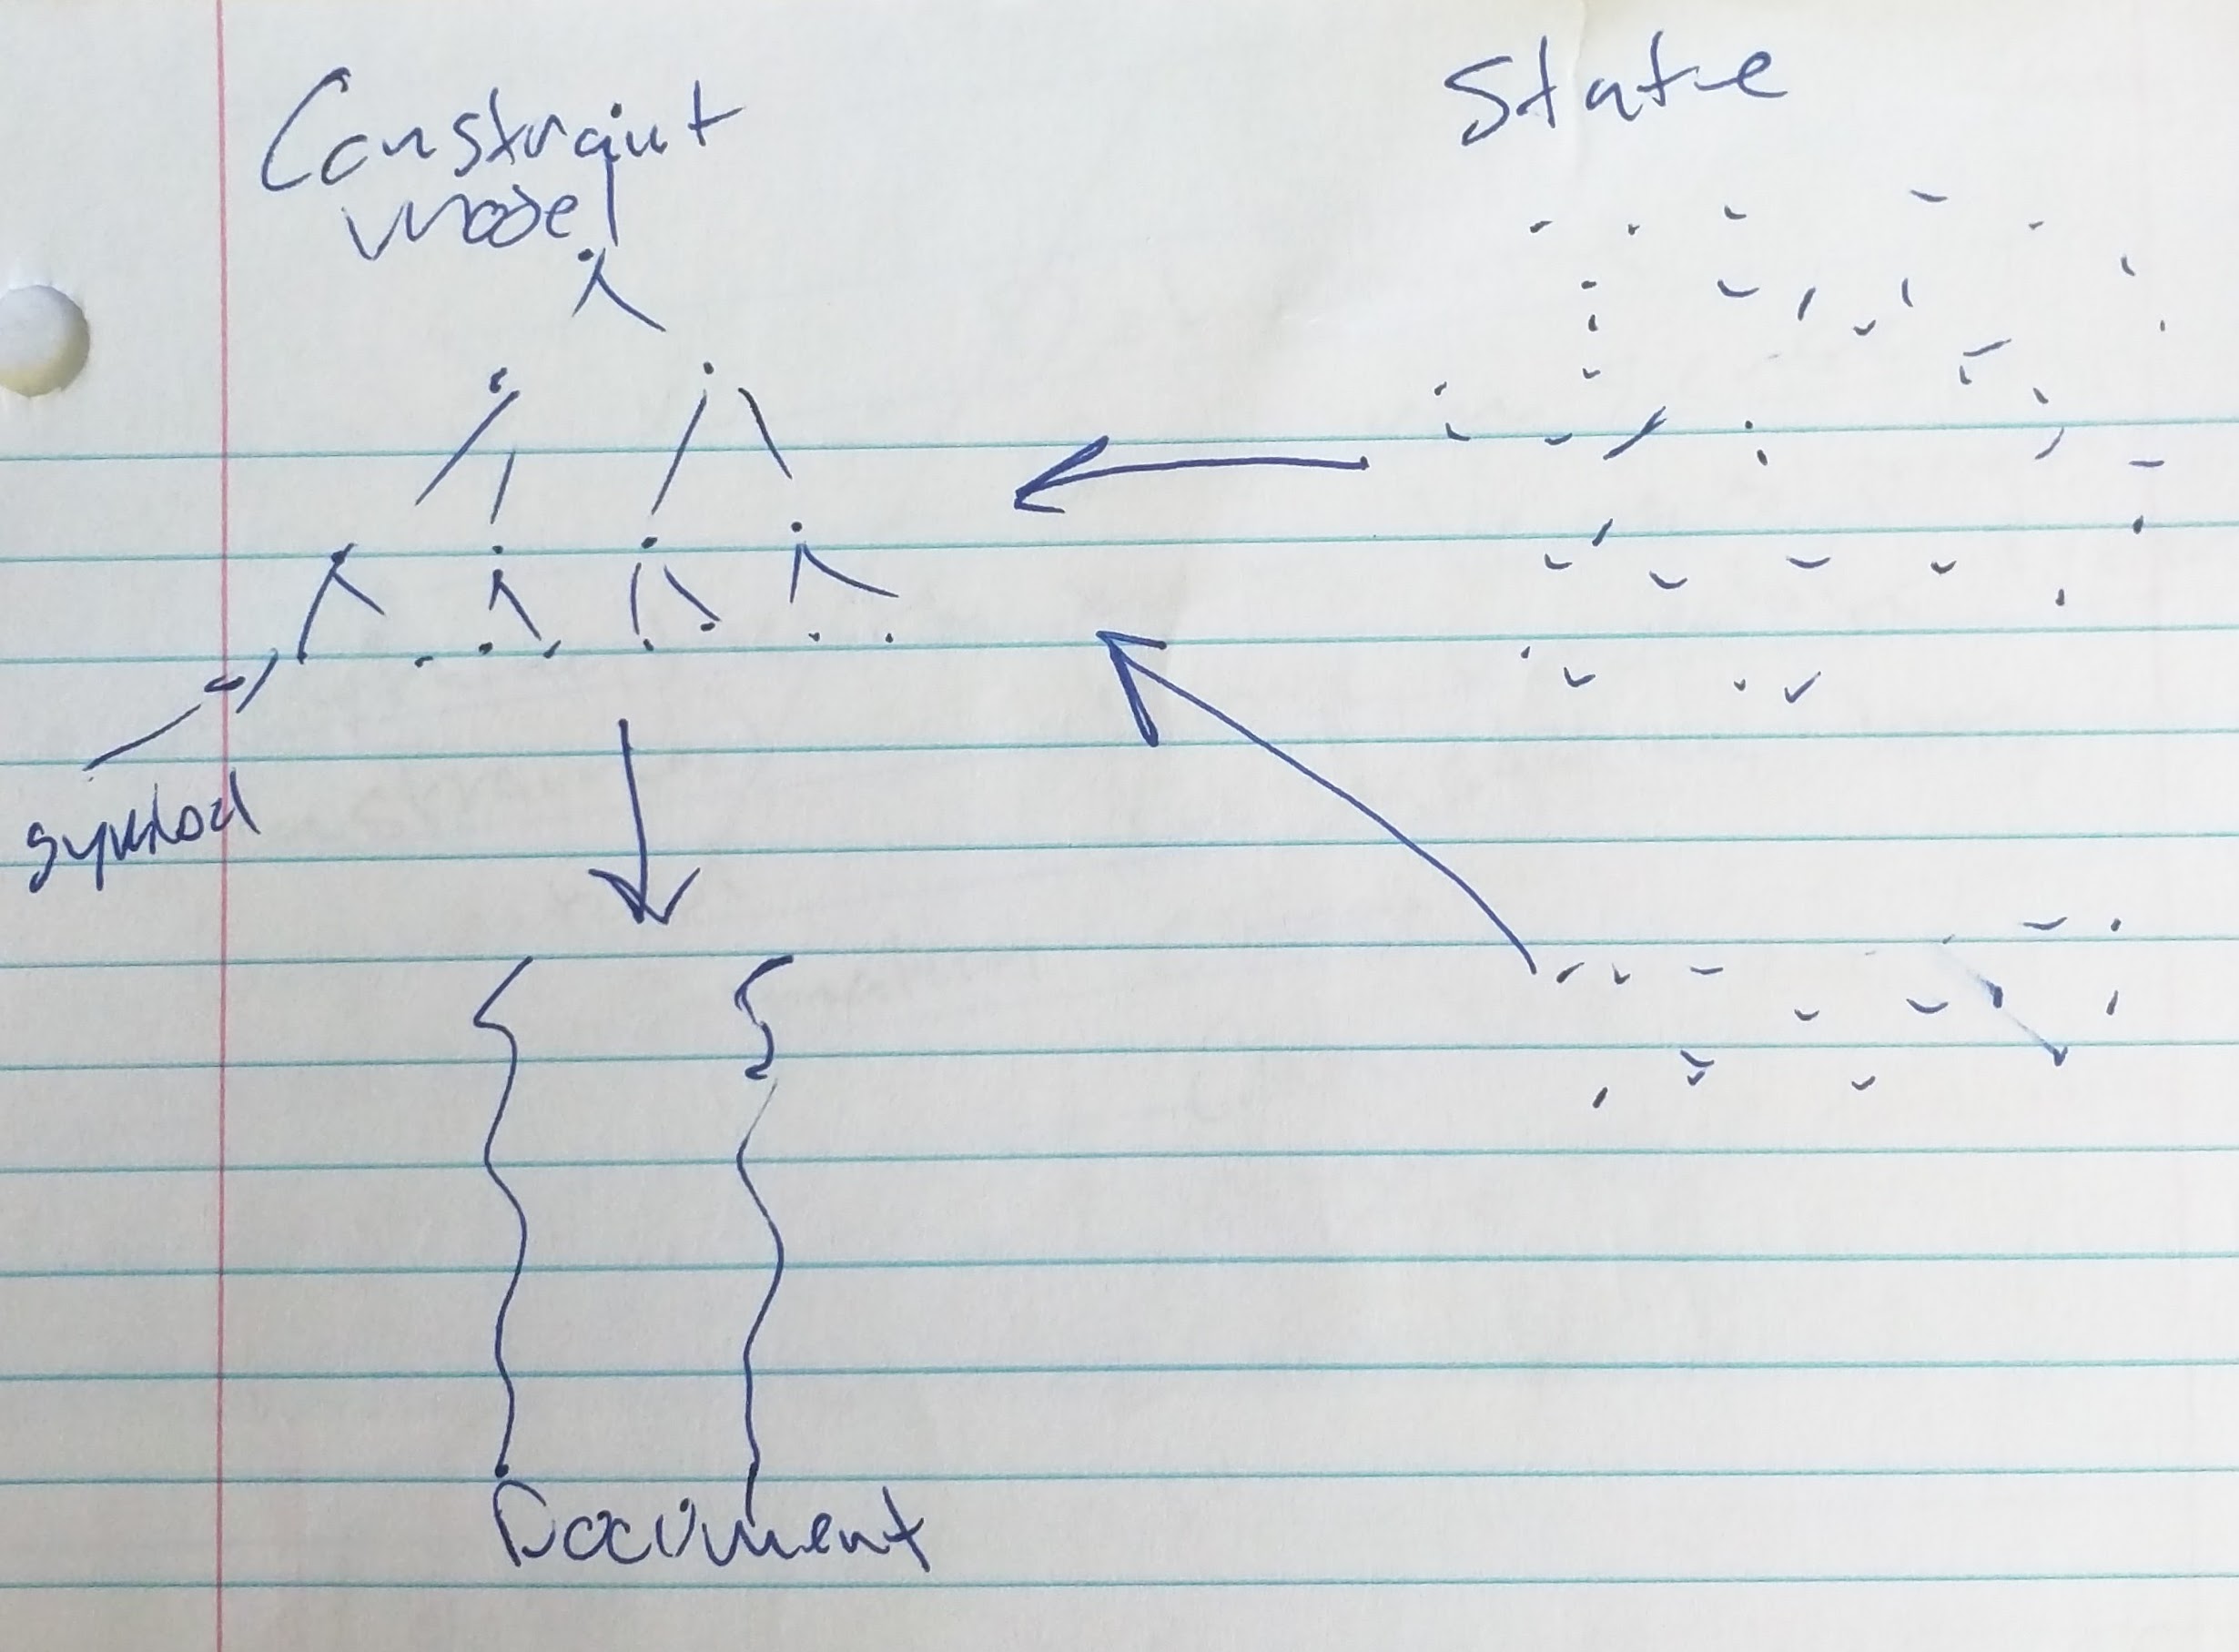 Constraint
model
State
symbol
Document